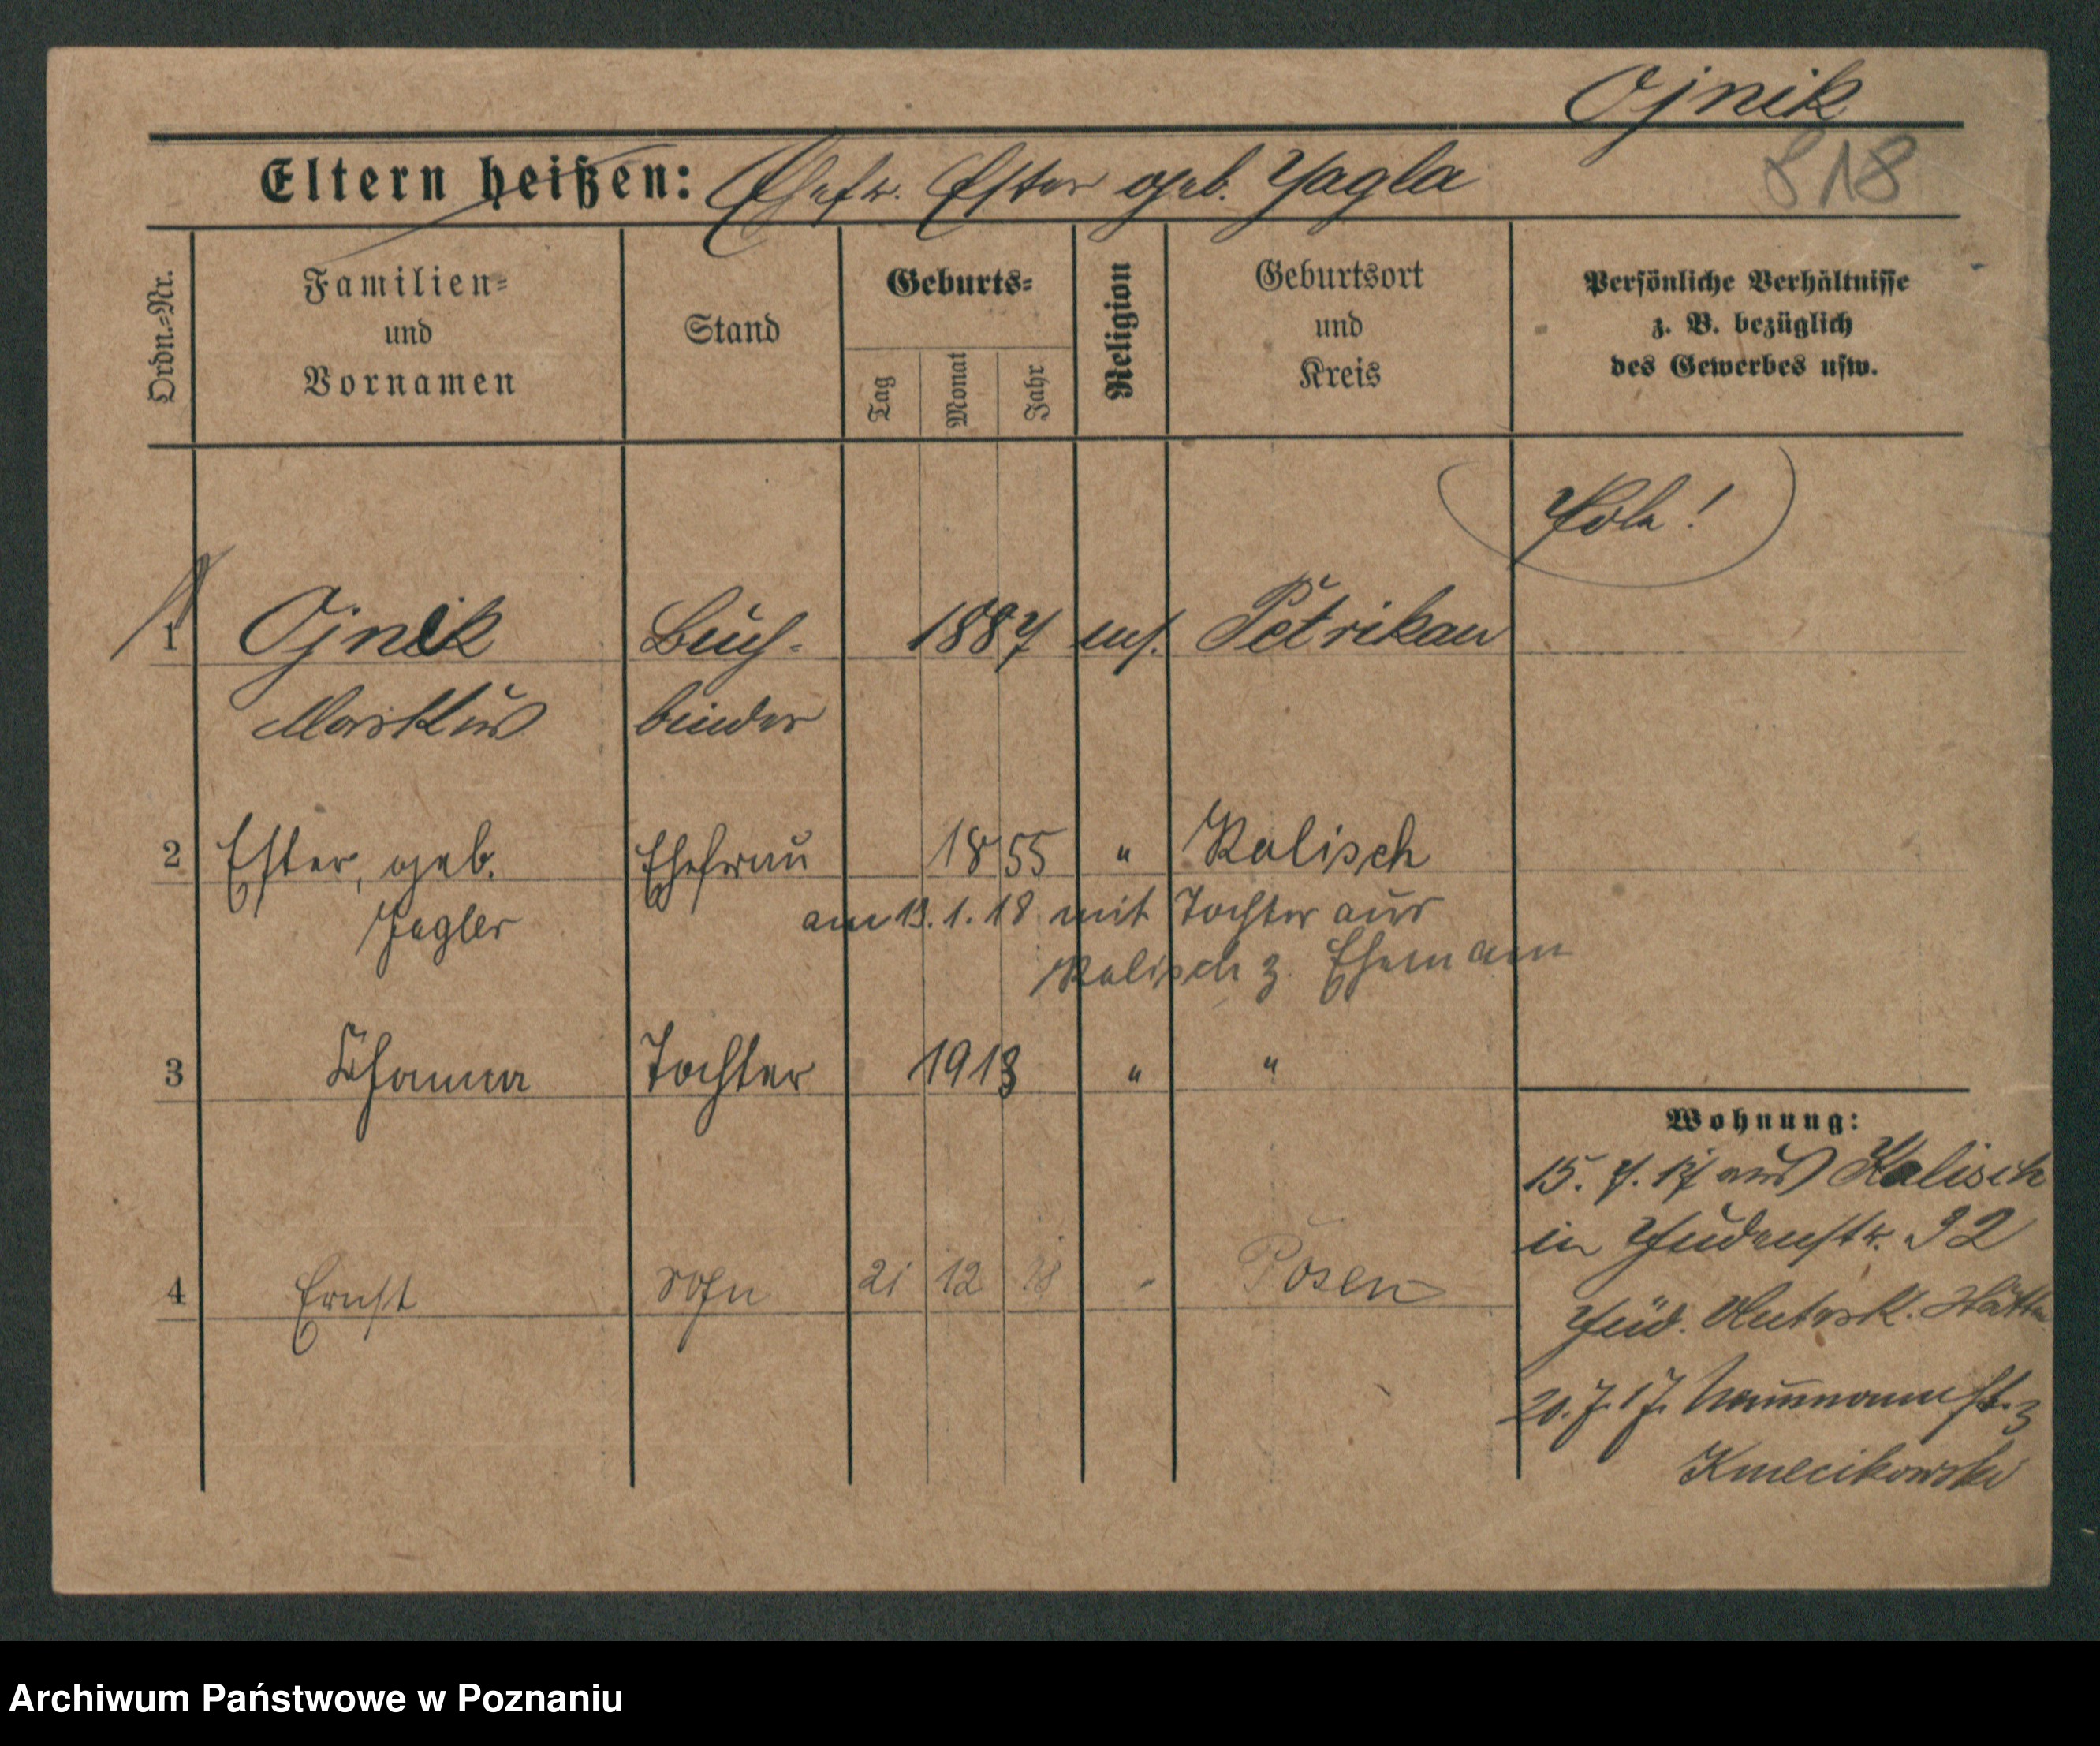 Ojnik
818
Eltern heißen: Ehefr. Ester geb. Yagla
Ordn.-Nr.
Familien-
und
Vornamen
Stand
Geburts-
Tag
Monat
Jahr
Religion
Geburtsort
und
Kreis
Persönliche Verhältnisse
z. B. bezüglich
des Gewerbes usw.
Pole!
1 Ojnik Buch- 1887 mos. Petrikau
Markus binder
2 Ester, geb. Ehefrau 1855 " Kalisch
Jagler
am 13.1.18 mit Tochter aus
Kalisch z. Ehemann
3 Channa Tochter 1913 " "
4 Ernst Sohn 21 12 18 " Posen
Wohnung:
15. 7. 17 aus Kalisch
in Judenstr. 32
Jüd.
20. 7. 17. Naumannst. 3
Kmecikowski
Archiwum Państwowe w Poznaniu